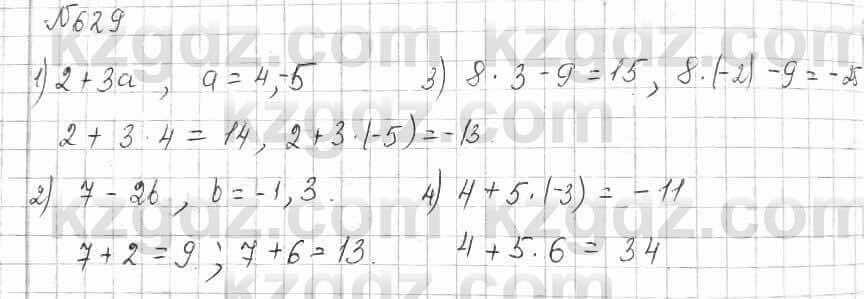 №629
1) 2 + 3a , a = 4, -5
2 + 3 · 4 = 14, 2 + 3 · (-5) = -13.
2) 7 - 2b , b = -1, 3.
7 + 2 = 9 ; 7 + 6 = 13.
3) 8 · 3 - 9 = 15, 8 · (-2) - 9 = -25
4) 4 + 5 · (-3) = -11
4 + 5 · 6 = 34
kzgdz.com kzgdz.com kzgdz.com
kzgdz.com
kzgdz.com kzgdz.com kzgdz.com
kzgdz.com